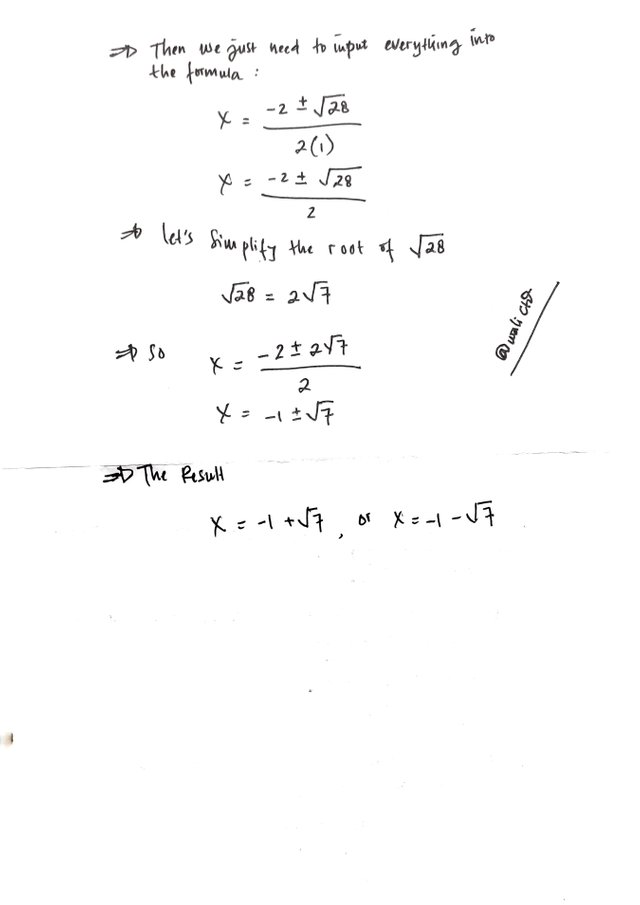 ⇒ Then we just need to input everything into
the formula :
x = -2 ± √28
2(1)
x = -2 ± √28
2
⇒ let's simplify the root of √28
√28 = 2√7
⇒ So
x = -2 ± 2√7
2
x = -1 ± √7
⇒ The Result
x = -1 + √7 , or x = -1 - √7